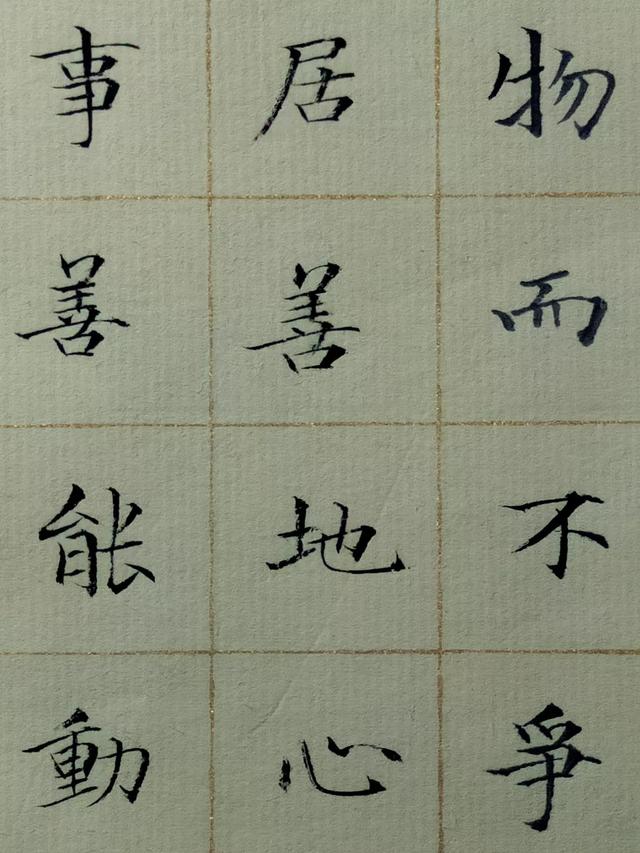 物而不爭
居善地心
事善能動